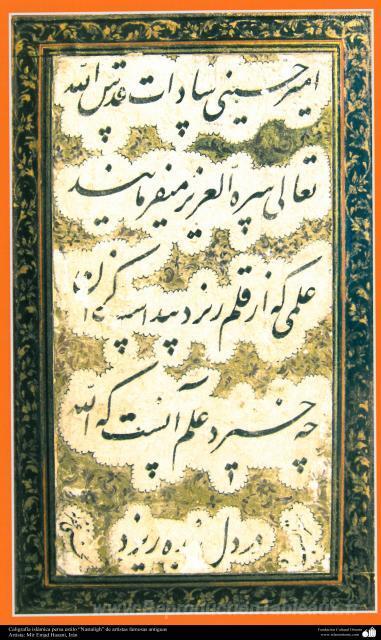 امیر حسینی سادات قدس الله
تعالی سره العزیز میفرمایند
علمی که از قلم ریزد پیداست کزان
چه خیزد علم آنست که الله
در دل بنده ریزد
Caligrafía islámica persa estilo "Nastaligh" de artistas famosas antiguas
Artista: Mir Emjad Hasani, Irán
Fundación Cultural Oriente